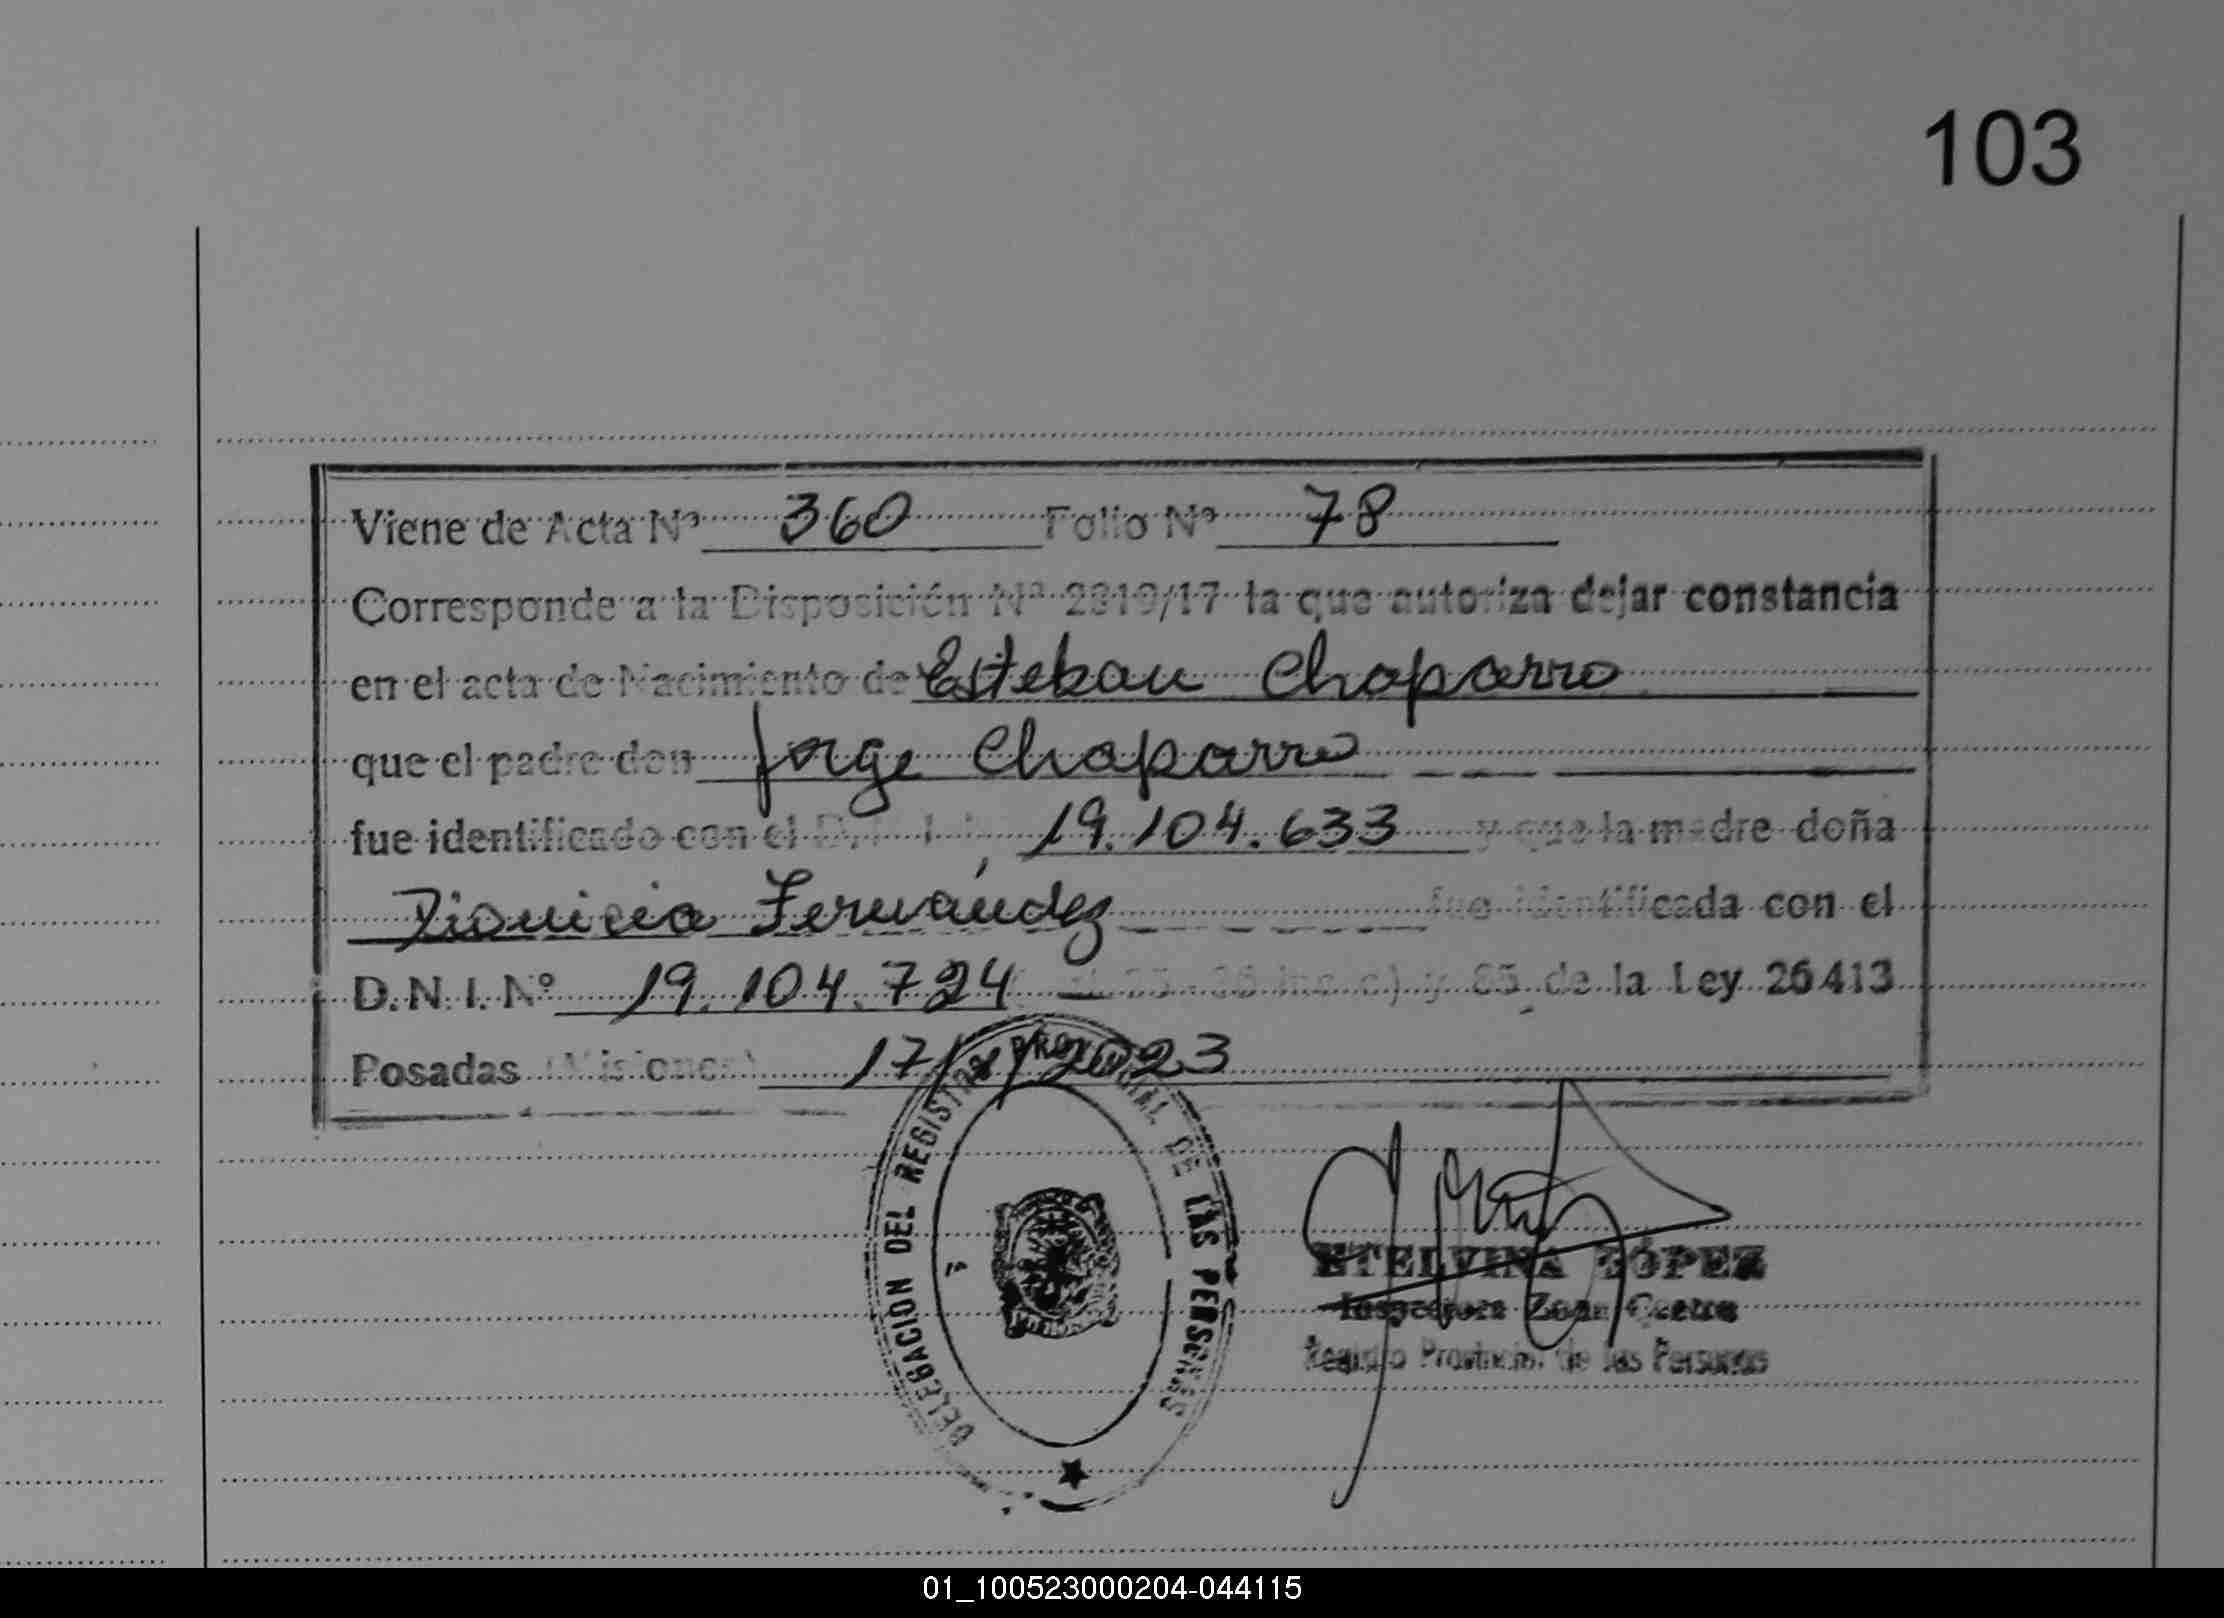 103
Viene de Acta Nº 360 Folio Nº 78
Corresponde a la Disposición Nº 2319/17 la que autoriza dejar constancia
en el acta de Nacimiento de Esteban Chaparro
que el padre don Jorge Chaparro
fue identificado con el D. 19.104.633 y que la madre doña
Dionicia Fernández fue identificada con el
D.N.I. Nº 19.104.724 y 85 de la Ley 26413
Posadas (Misiones) 17/ /2023
DELEGACION DEL REGISTRO PROVINCIAL DE LAS PERSONAS
ETELVINA LÓPEZ
Inspectora Zona Centro
Registro Provincial de las Personas
01_100523000204-044115